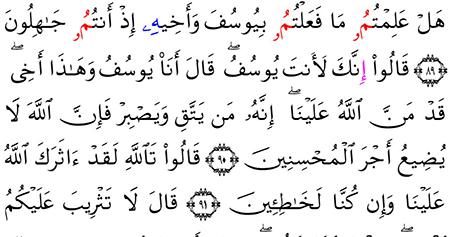 هَلْ عَلِمْتُمُۥ مَا فَعَلْتُمُۥ بِيُوسُفَ وَأَخِيهِۦ إِذْ أَنتُمُۥ جَٰهِلُونَ
٨٩ قَالُوٓا۟ إِنَّكَ لَأَنتَ يُوسُفُۖ قَالَ أَنَا۠ يُوسُفُ وَهَٰذَآ أَخِىۖ
قَدْ مَنَّ ٱللَّهُ عَلَيْنَآۖ إِنَّهُۥ مَن يَتَّقِ وَيَصْبِرْ فَإِنَّ ٱللَّهَ لَا
يُضِيعُ أَجْرَ ٱلْمُحْسِنِينَ ٩٠ قَالُوا۟ تَٱللَّهِ لَقَدْ ءَاثَرَكَ ٱللَّهُ
عَلَيْنَا وَإِن كُنَّا لَخَٰطِـِٔينَ ٩١ قَالَ لَا تَثْرِيبَ عَلَيْكُمُ